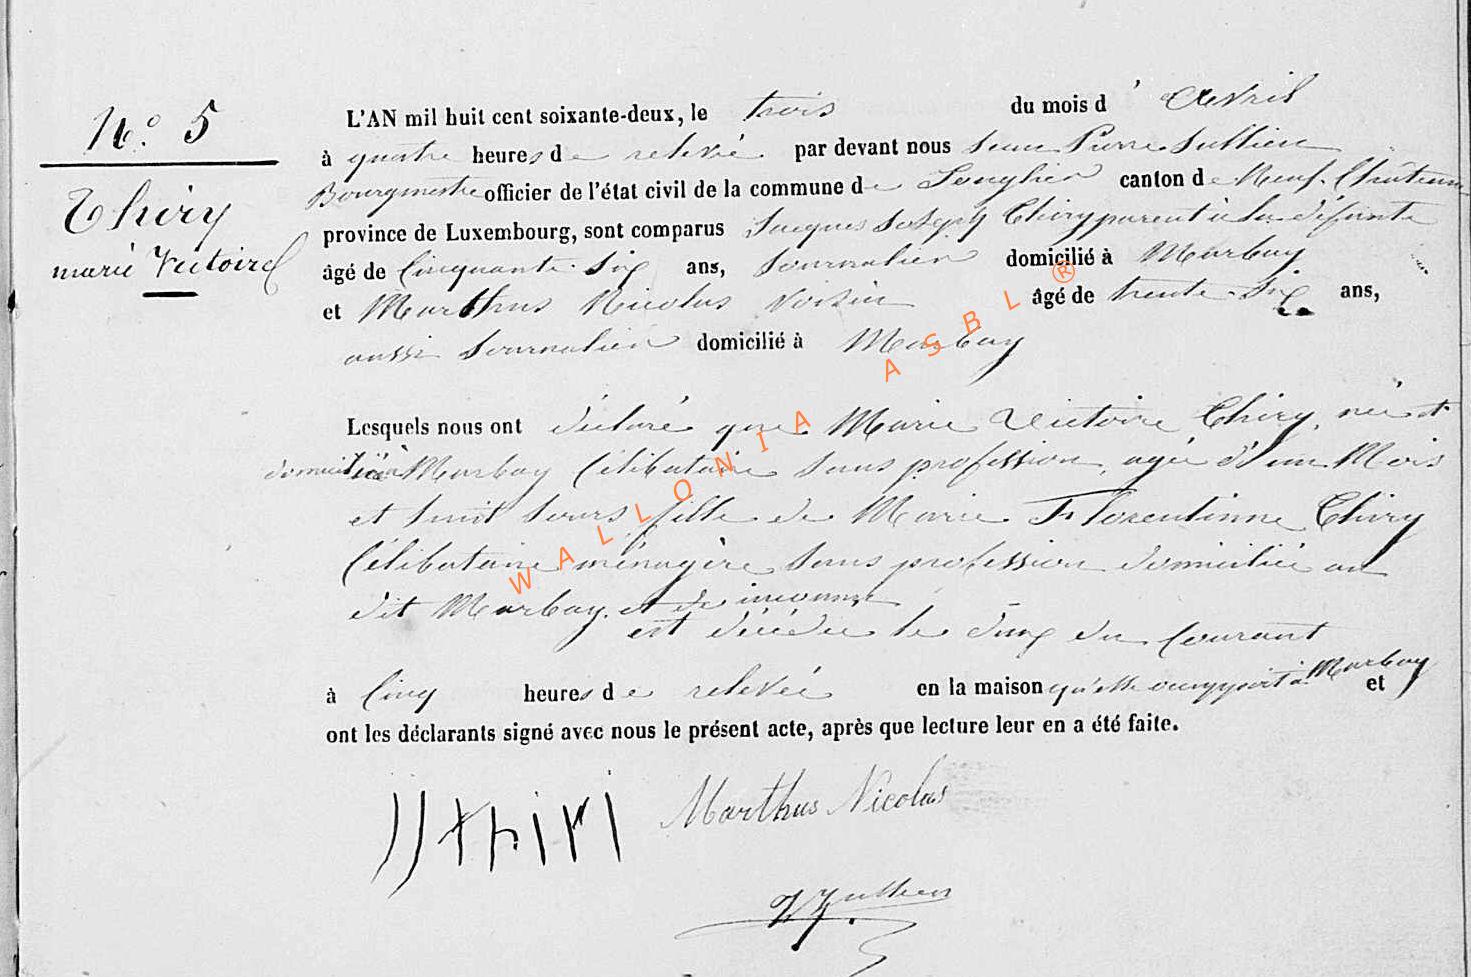 N.° 5
Thiry
marie Victoire
L'AN mil huit cent soixante-deux, le trois du mois d' Avril
à quatre heures de relevée par devant nous Jean Pierre Jullien
Bourgmestre officier de l'état civil de la commune de Longlier canton de Neuf-Château
province de Luxembourg, sont comparus Jacques Joseph Thiry parent à la défunte
âgé de Cinquante-Six ans, Journalier domicilié à Marbay
et Marthus Nicolas voisin âgé de trente-Six ans,
aussi Journalier domicilié à Marbay
Lesquels nous ont déclaré que Marie Victoire Thiry, née et
domiciliée à Marbay Célibataire sans profession, agée d'un Mois
et huit Jours fille de Marie Florentinne Thiry
Célibataire ménagère sans profession domiciliée au
dit Marbay. et de inconnu
est décédée le deux du Courant
à Cinq heures de relevée en la maison qu'elle occuppait à Marbay et
ont les déclarants signé avec nous le présent acte, après que lecture leur en a été faite.
JJ thiri Marthus Nicolas
Jullien
WALLONIA ASBL ®